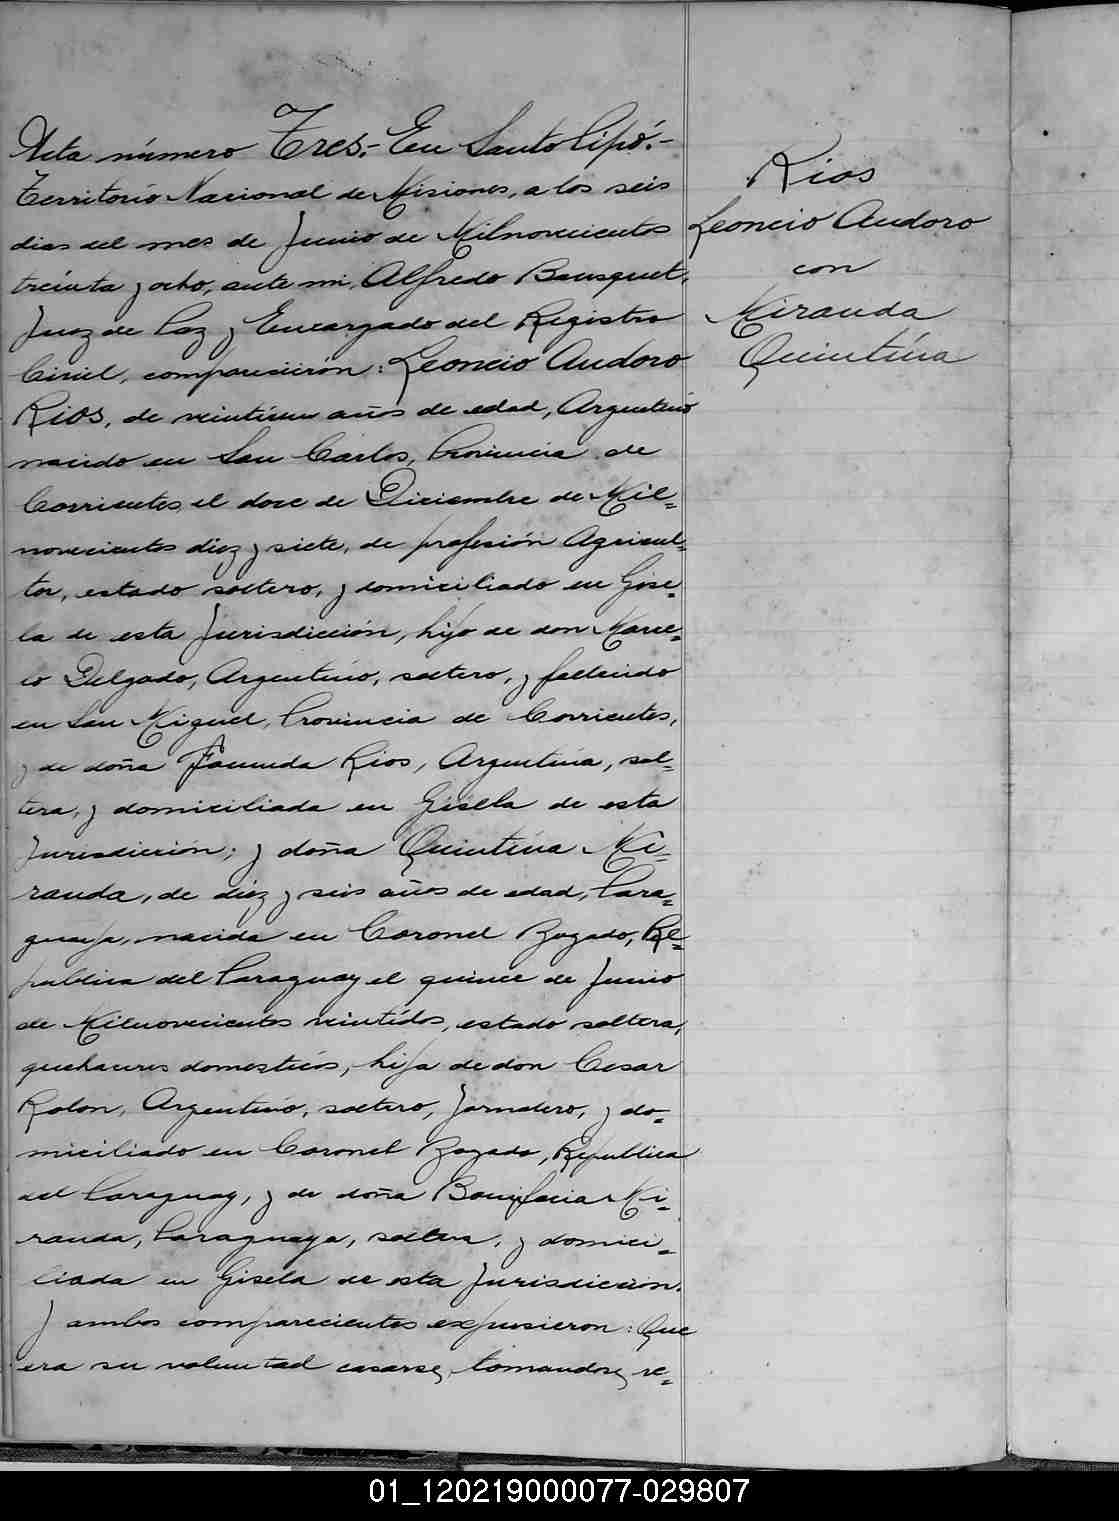 Acta número Tres.- En Santo Pipó.-
Territorio Nacional de Misiones, a los seis
dias del mes de Junio de Milnovecientos
treinta y ocho, ante mi, Alfredo Bousquet,
Juez de Paz y Encargado del Registro
Civil, comparecieron: Leoncio Audoro
Rios, de veintiun años de edad, Argentino
nacido en San Carlos, Provincia de
Corrientes, el doce de Diciembre de Mil=
novecientos diez y siete, de profesión Agricul=
tor, estado soltero, y domiciliado en Gise=
la de esta Jurisdicción, hijo de don Marce=
lo Delgado, Argentino, soltero, y fallecido
en San Miguel, Provincia de Corrientes,
y de doña Rios, Argentina, sol=
tera, y domiciliada en Gisella de esta
Jurisdicción; y doña Quintina Mi=
randa, de diez y seis años de edad, Para=
guaya, nacida en Coronel Bogado, Re=
publica del Paraguay el quince de Junio
de Milnovecientos veintidos, estado soltera,
quehaceres domesticos, hija de don Cesar
Rolon, Argentino, soltero, Jornalero, y do=
miciliado en Coronel Bogado, Republica
del Paraguay, y de doña Bonifacia Mi=
randa, Paraguaya, soltera, y domici=
liada en Gisela de esta Jurisdicción.
Y ambos comparecientes expusieron: Que
era su voluntad casarse, tomandose, re=
Rios
Leoncio Audoro
con
Miranda
Quintina
01_120219000077-029807